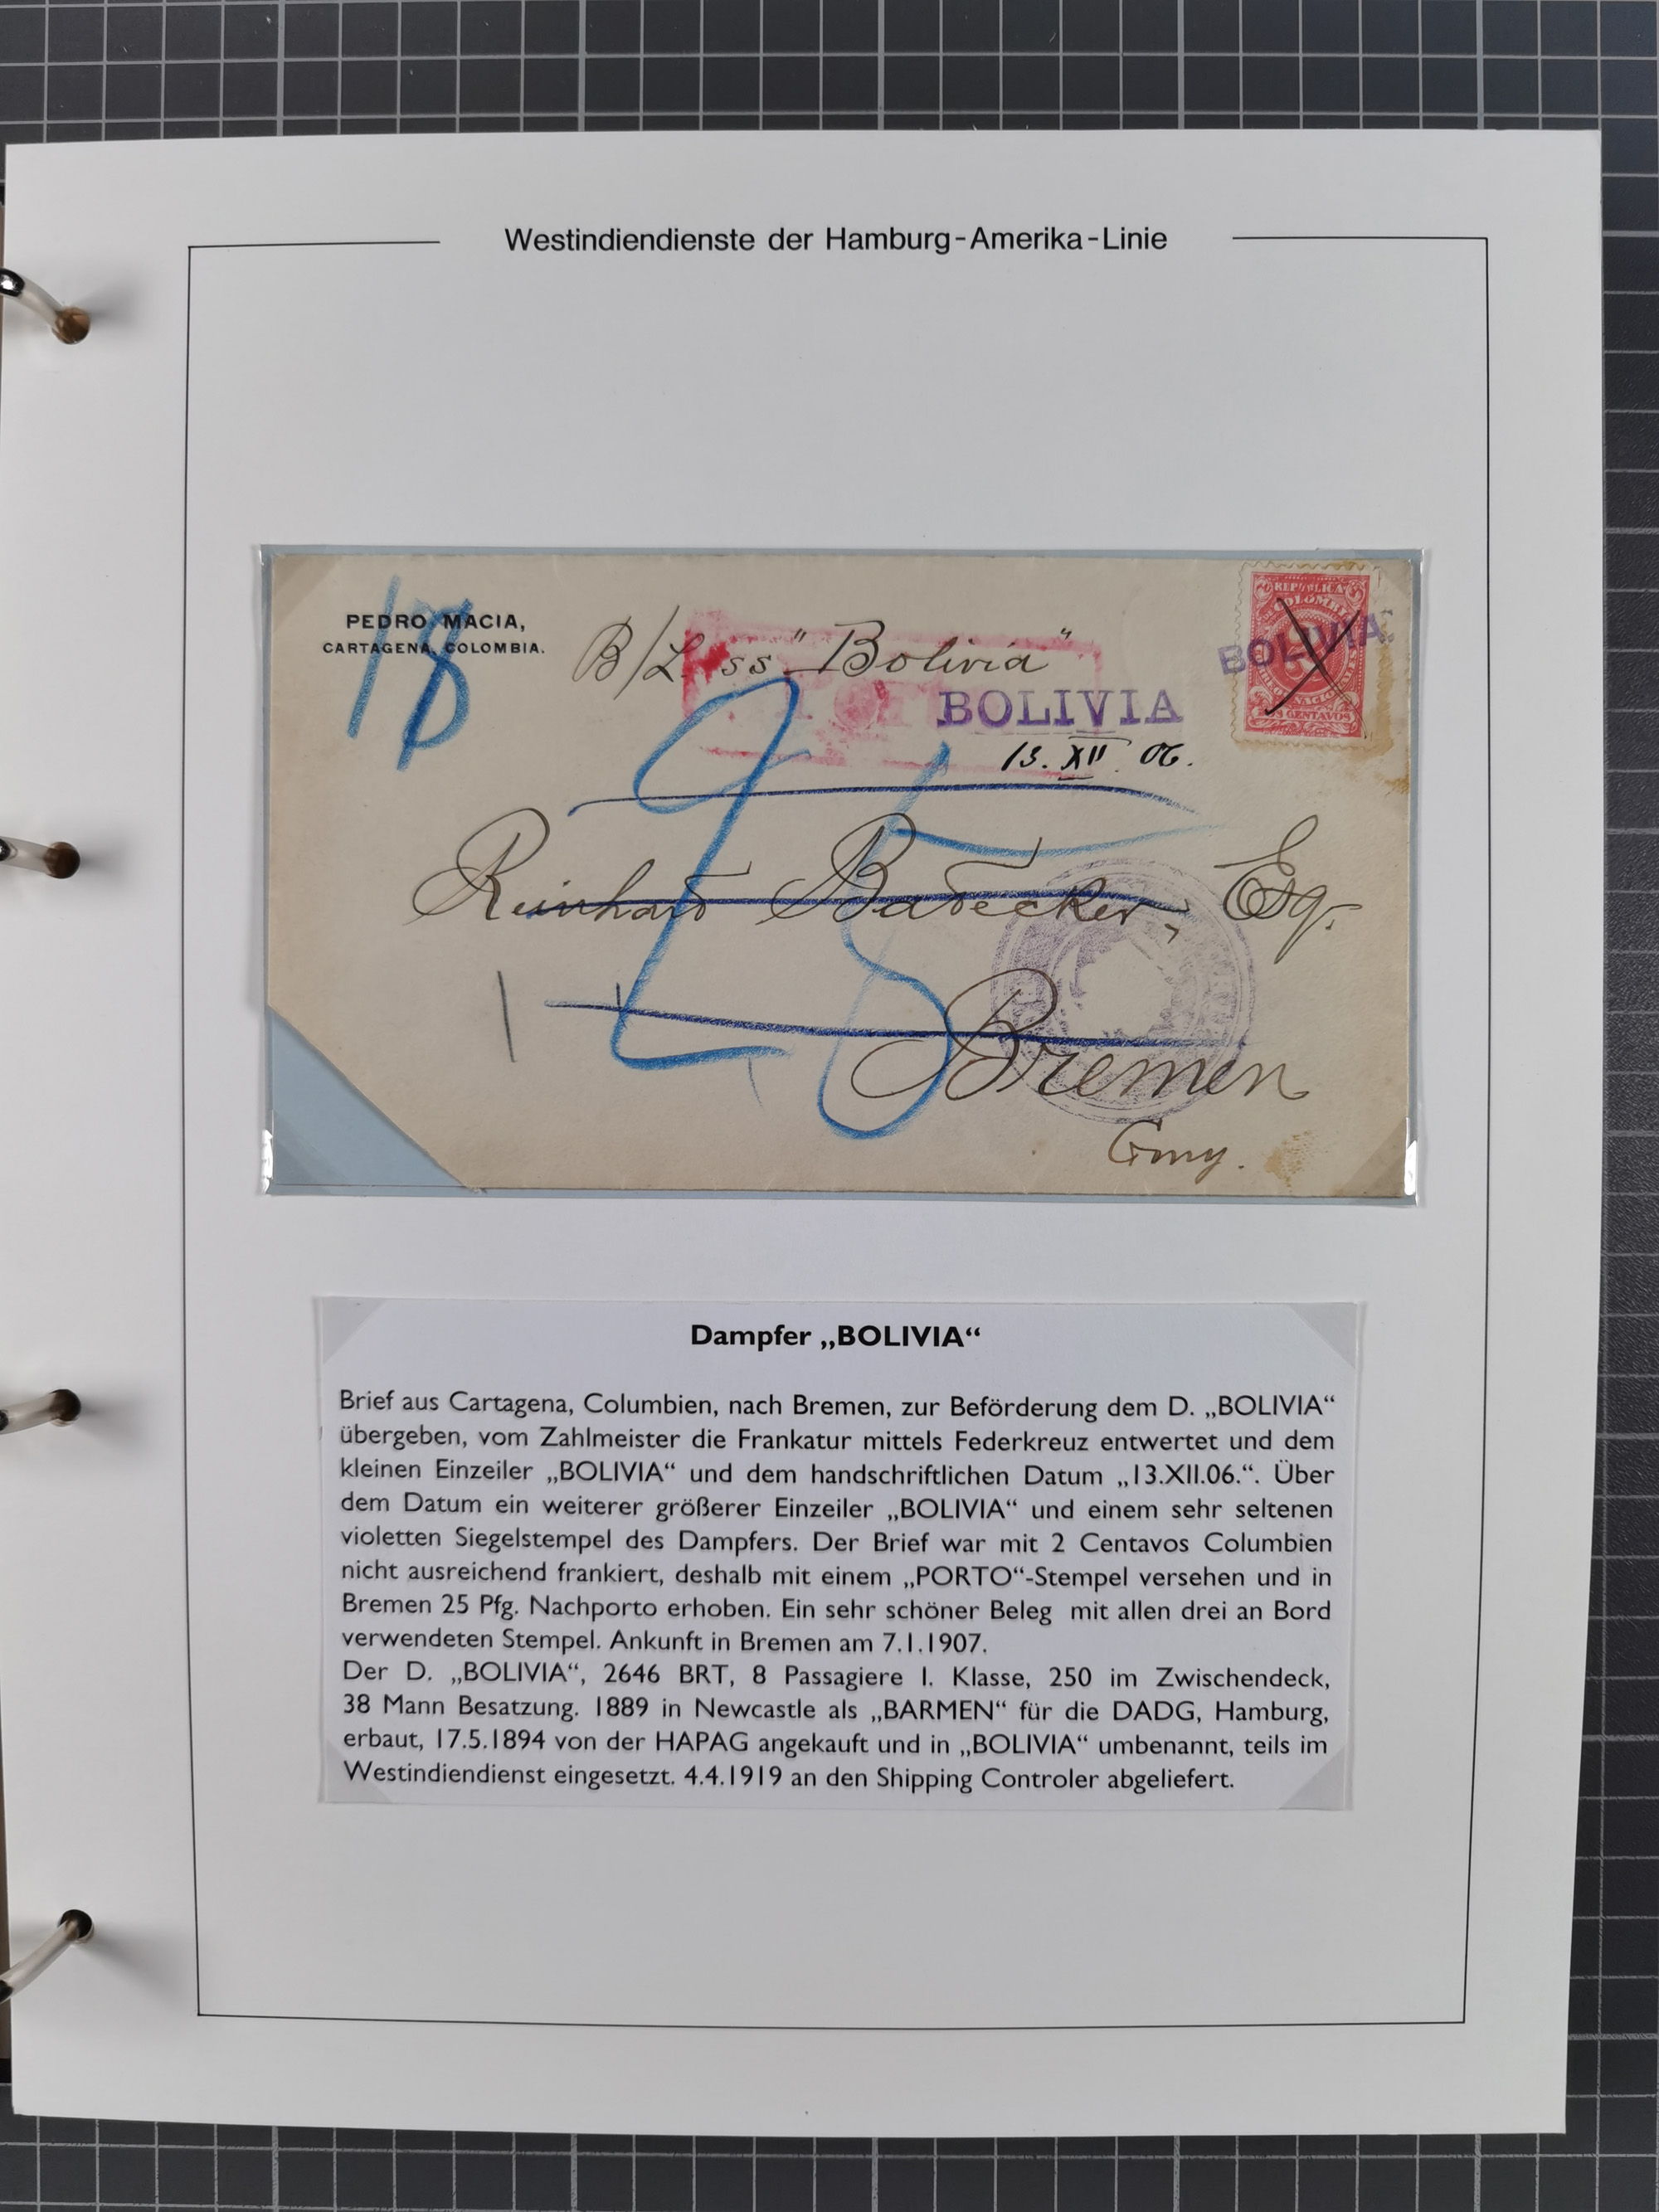 Westindiendienste der Hamburg-Amerika-Linie
18
PEDRO MACIA,
CARTAGENA, COLOMBIA.
B/L ss "Bolivia"
BOLIVIA
13. XII. 06.
REPUBLICA
COLOMBIA
BOLIVIA
CORREOS NACIONALES
DOS CENTAVOS
25
Reinhard Badecker, Esq.
Bremen
Gmy.
Dampfer „BOLIVIA“
Brief aus Cartagena, Columbien, nach Bremen, zur Beförderung dem D. „BOLIVIA“
übergeben, vom Zahlmeister die Frankatur mittels Federkreuz entwertet und dem
kleinen Einzeiler „BOLIVIA“ und dem handschriftlichen Datum „13.XII.06.“. Über
dem Datum ein weiterer größerer Einzeiler „BOLIVIA“ und einem sehr seltenen
violetten Siegelstempel des Dampfers. Der Brief war mit 2 Centavos Columbien
nicht ausreichend frankiert, deshalb mit einem „PORTO“-Stempel versehen und in
Bremen 25 Pfg. Nachporto erhoben. Ein sehr schöner Beleg mit allen drei an Bord
verwendeten Stempel. Ankunft in Bremen am 7.1.1907.
Der D. „BOLIVIA“, 2646 BRT, 8 Passagiere I. Klasse, 250 im Zwischendeck,
38 Mann Besatzung. 1889 in Newcastle als „BARMEN“ für die DADG, Hamburg,
erbaut, 17.5.1894 von der HAPAG angekauft und in „BOLIVIA“ umbenannt, teils im
Westindiendienst eingesetzt. 4.4.1919 an den Shipping Controler abgeliefert.